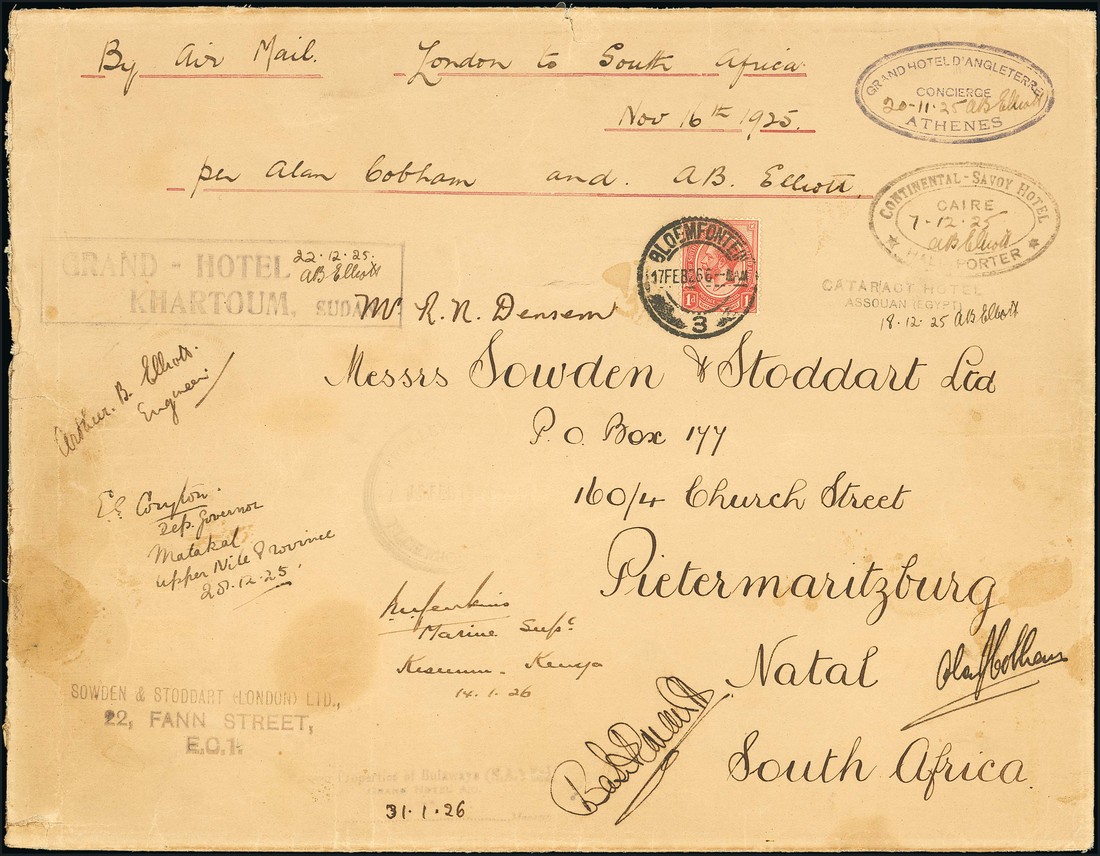 By Air Mail. London to South Africa
Nov 16th 1925.
per Alan Cobham and. A.B. Elliott.
GRAND HOTEL D'ANGLETERRE
CONCIERGE
20-11-25 AB Elliott
ATHENES
CONTINENTAL-SAVOY HOTEL
CAIRE
7-12-25
AB Elliott
HALL PORTER
CATARACT HOTEL
ASSOUAN (EGYPT)
18.12.25 AB Elliott
GRAND-HOTEL
KHARTOUM, SUDAN
22.12.25.
AB Elliott
BLOEMFONTEIN
17FEB26
3
1d 1d
Mr R.N. Densem
Messrs Sowden & Stoddart Ltd
P.O. Box 177
160/4 Church Street
Pietermaritzburg
Natal
South Africa
Arthur. B. Elliott.
Engineer
Coryton.
Dep. Governor
Malakal
Upper Nile Province
28.12.25
Marine Supt
Kisumu Kenya
14.1.26
SOWDEN & STODDART (LONDON) LTD.,
22, FANN STREET,
E.C.1.
Properties of Bulawayo
31.1.26
Alan J Cobham